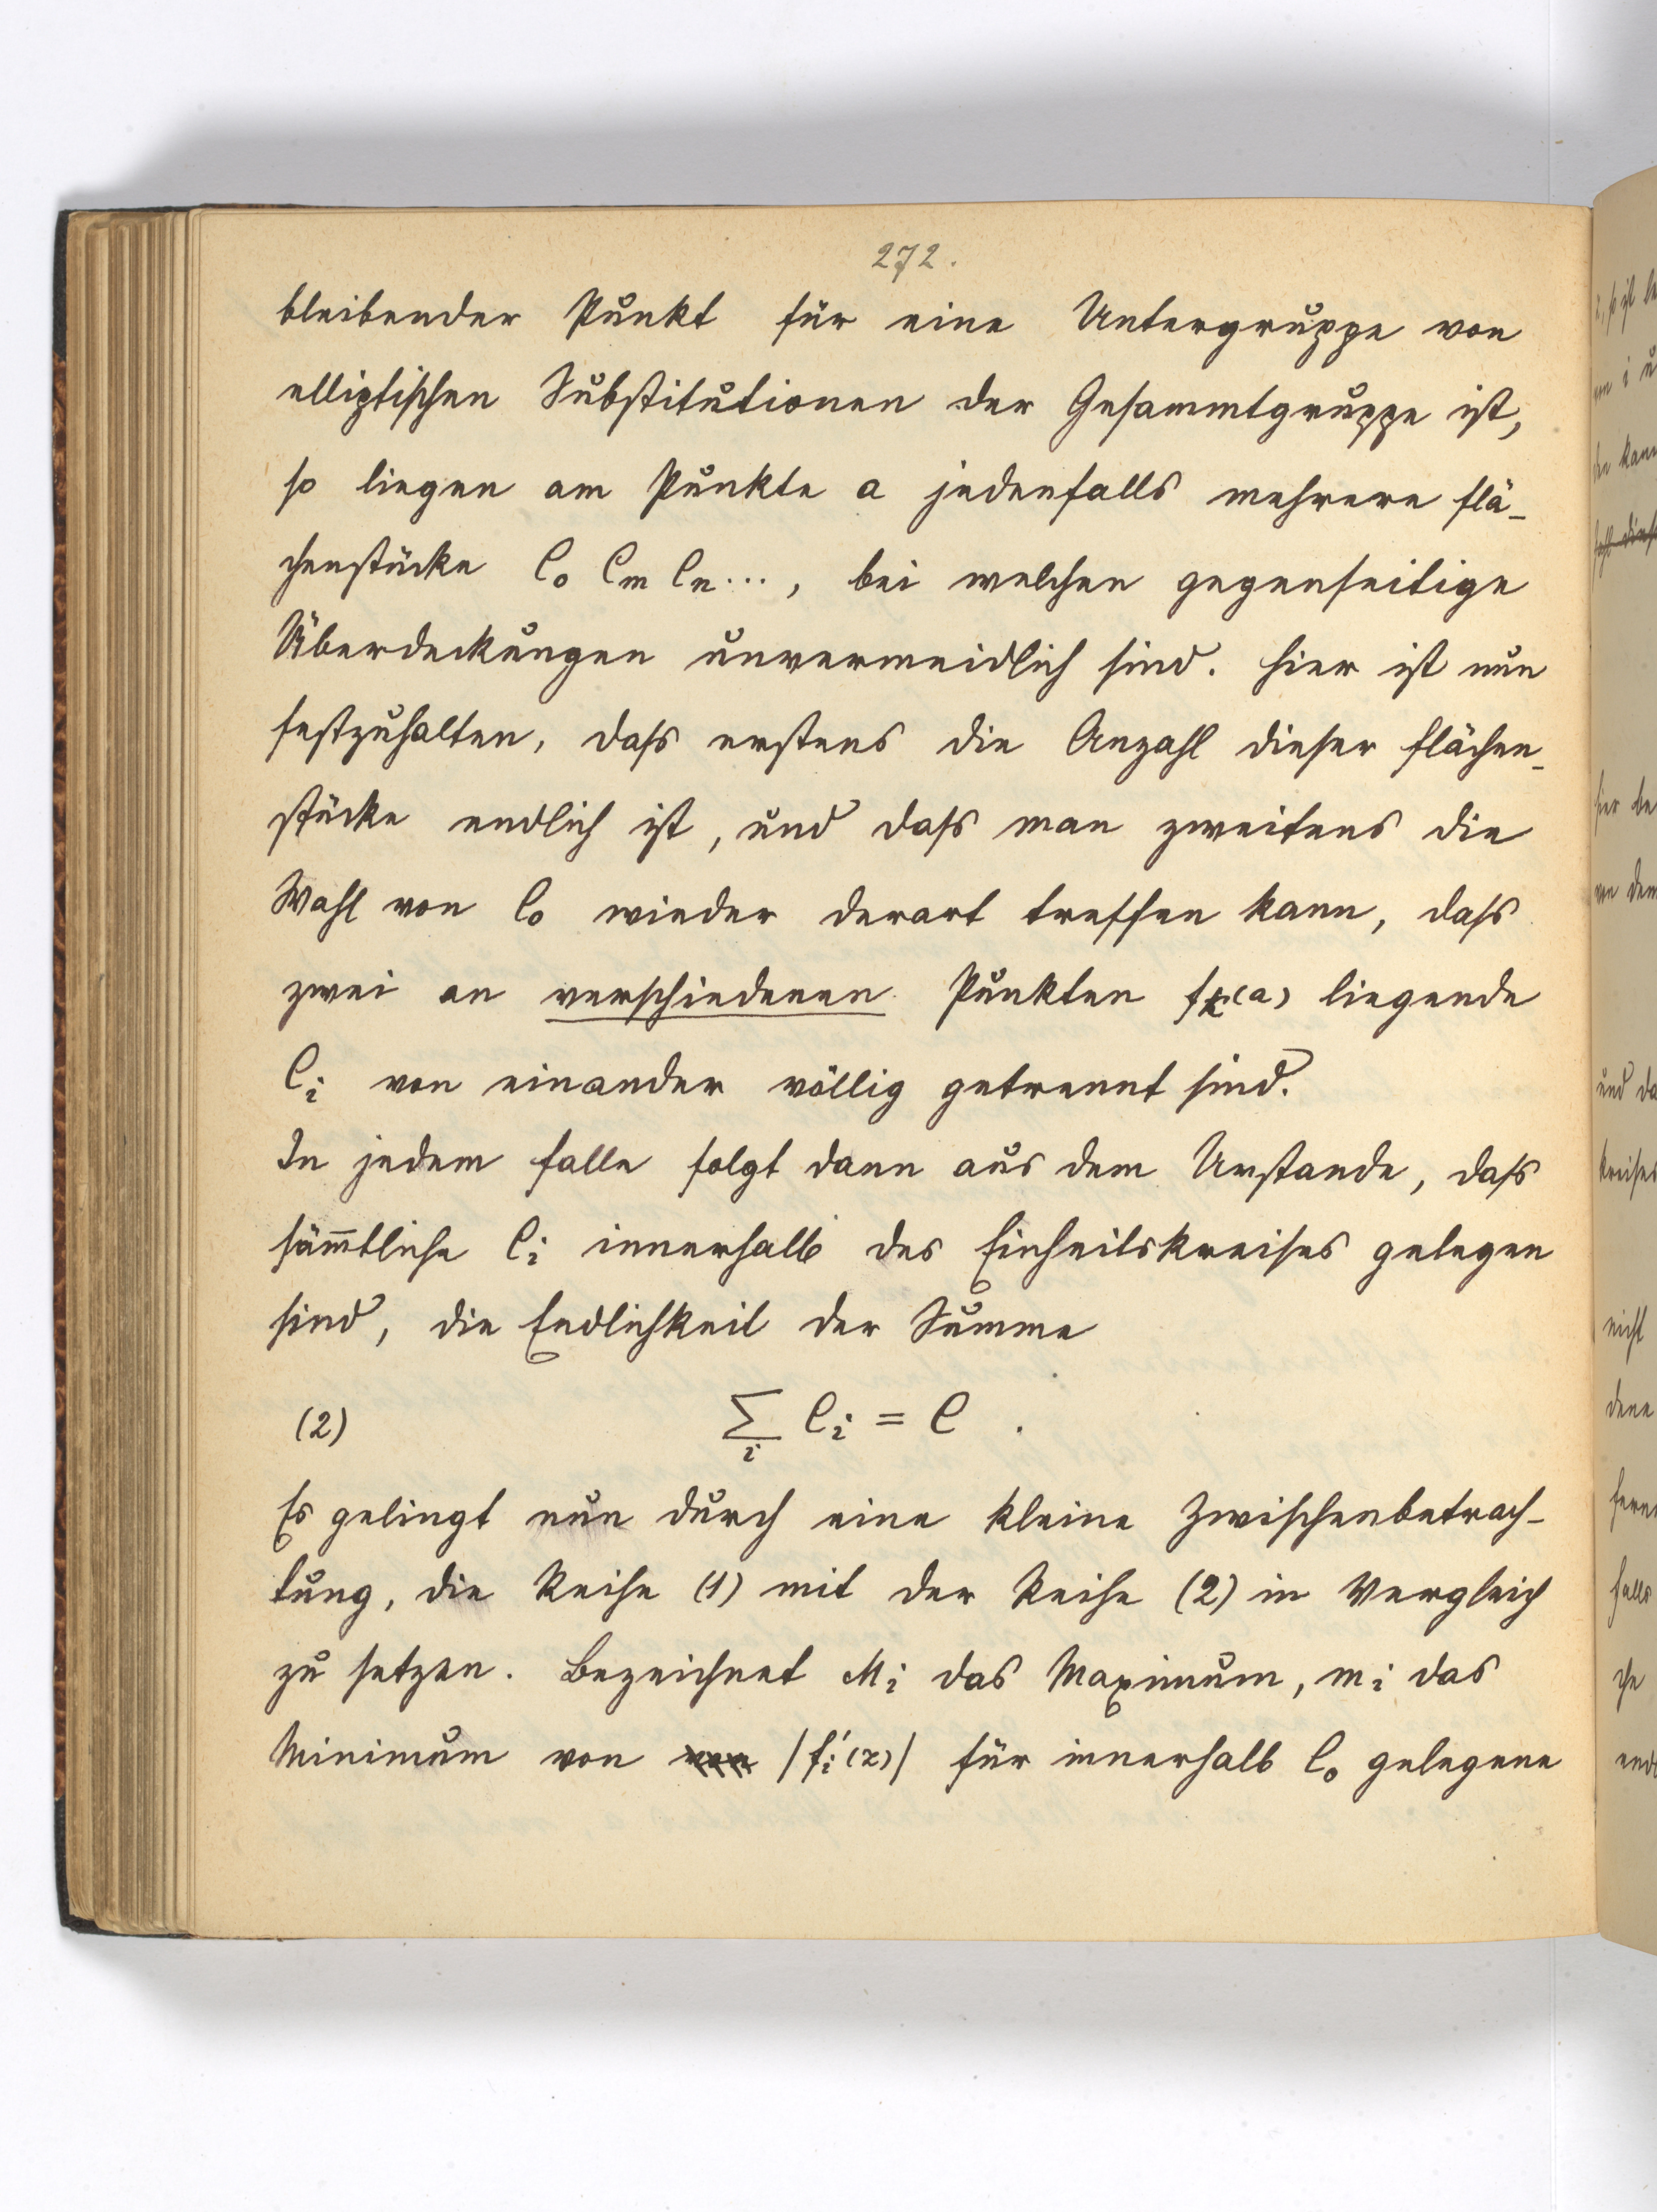 272.
bleibender Punkt für eine Untergruppe von
elliptischen Substitutionen der Gesammtgruppe ist,
so liegen am Punkte a jedenfalls mehrere Flä-
chenstücke C₀ Cₘ Cₙ..., bei welchen gegenseitige
Überdeckungen unvermeidlich sind. Hier ist nun
festzuhalten, dass erstens die Anzahl dieser Flächen-
stücke endlich ist, und dass man zweitens die
Wahl von C₀ wieder derart treffen kann, dass
zwei an verschiedenen Punkten fₖ(a) liegende
Cᵢ von einander völlig getrennt sind.
In jedem Falle folgt dann aus dem Umstande, dass
säm̅tliche Cᵢ innerhalb des Einheitskreises gelegen
sind, die Endlichkeit der Summe
(2) ∑ᵢ Cᵢ = C .
Es gelingt nun durch eine kleine Zwischenbetrach-
tung, die Reihe (1) mit der Reihe (2) in Vergleich
zu setzen. Bezeichnet Mᵢ das Maximum, mᵢ das
Minimum von von |fᵢ'(z)| für innerhalb C₀ gelegene